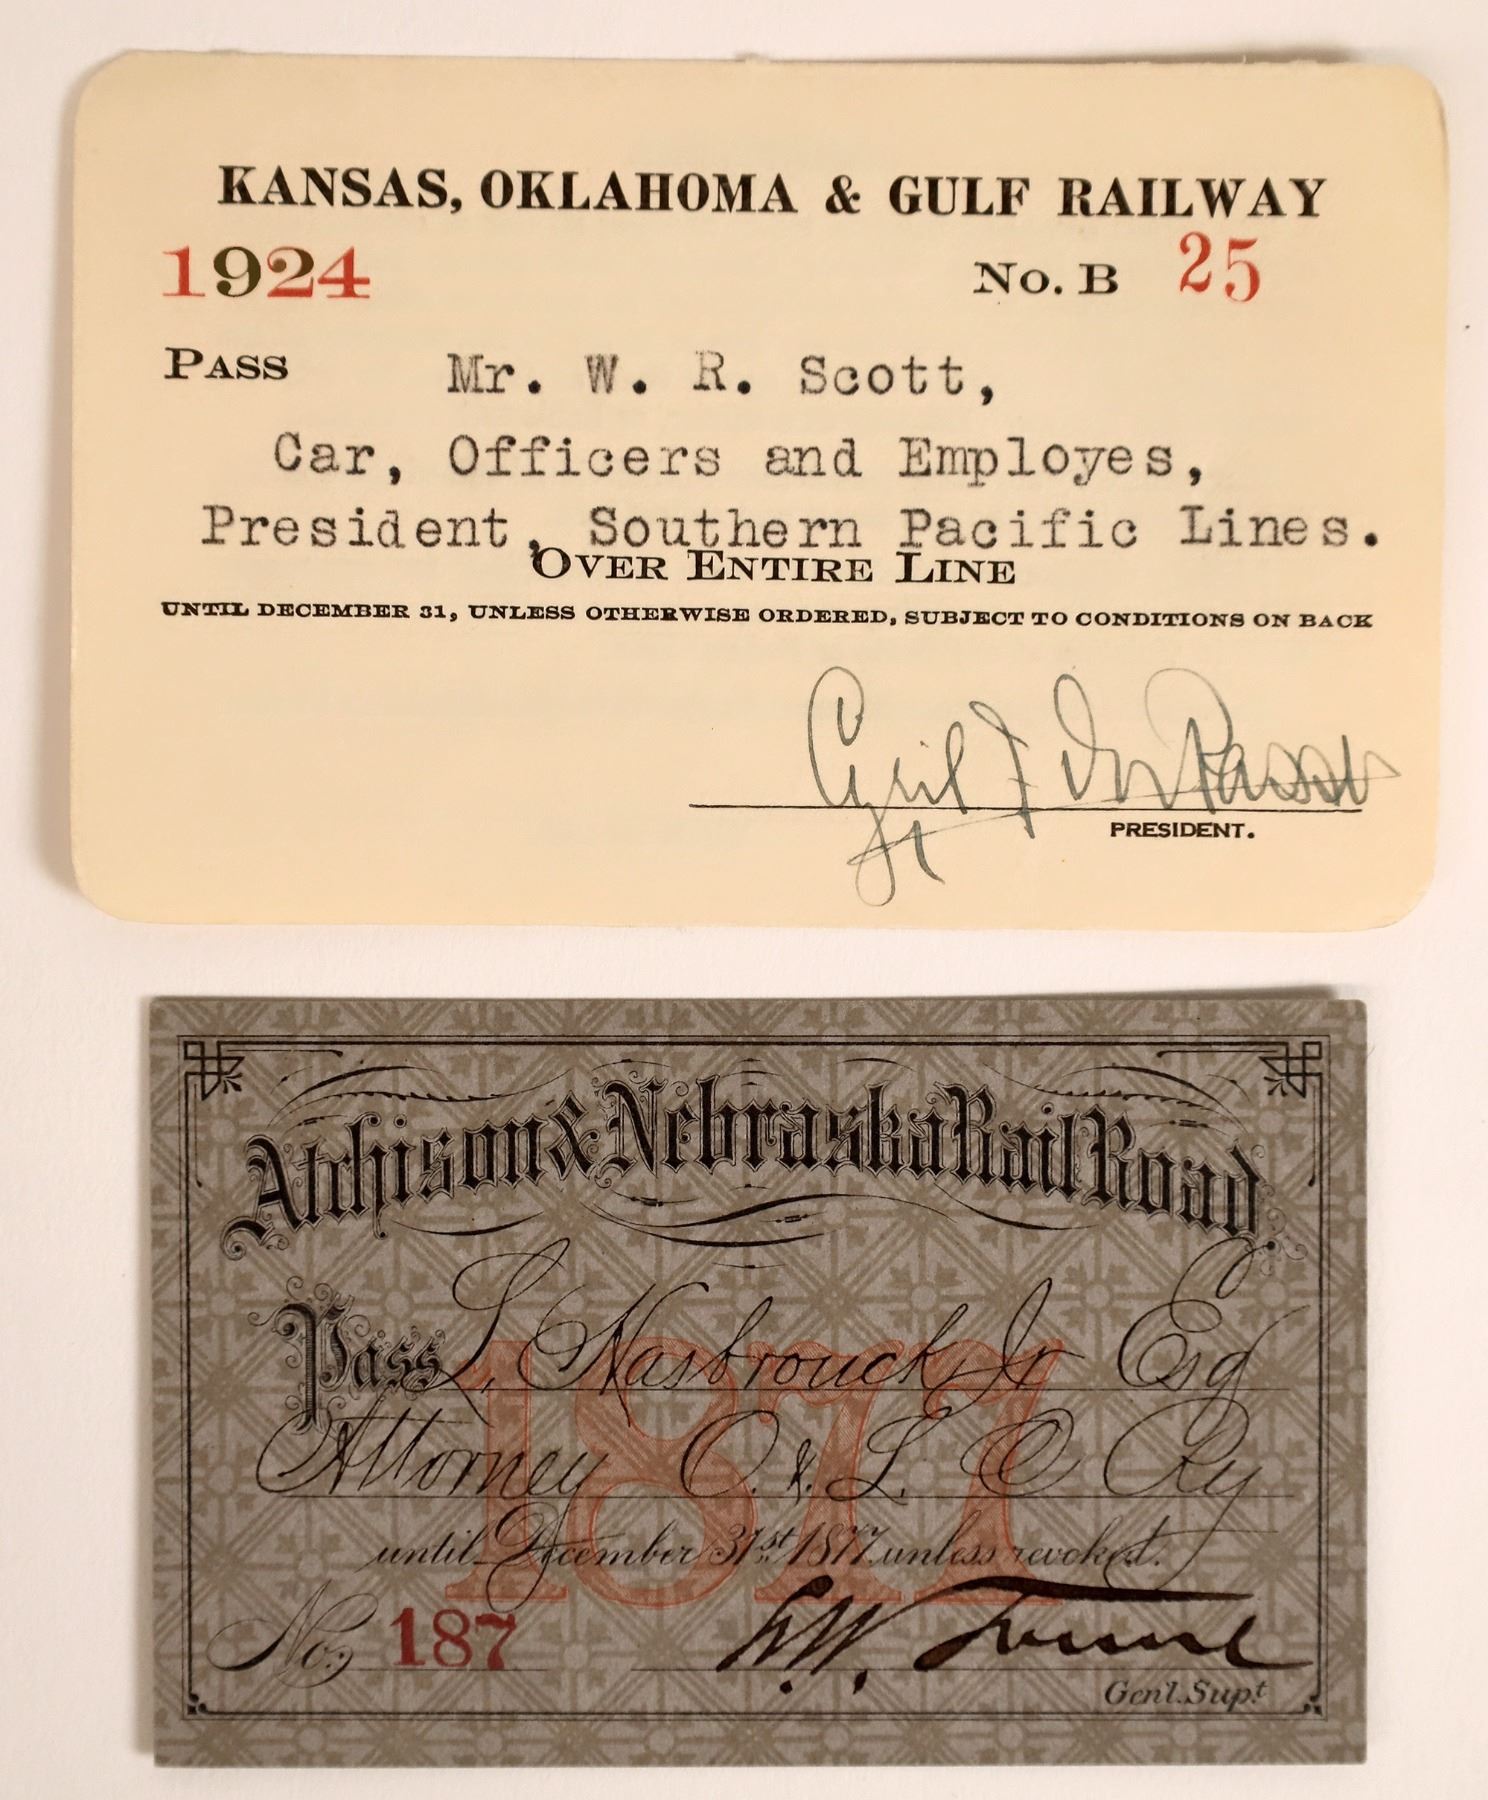 KANSAS, OKLAHOMA & GULF RAILWAY
1924 No. B 25
PASS Mr. W. R. Scott,
Car, Officers and Employes,
President, Southern Pacific Lines.
OVER ENTIRE LINE
UNTIL DECEMBER 31, UNLESS OTHERWISE ORDERED, SUBJECT TO CONDITIONS ON BACK
PRESIDENT.
Atchison & Nebraska Rail Road.
Pass L. Hasbrouck Jr Esq
Attorney O. & L. C Ry
1877
until December 31st 1877 unless revoked.
No. 187
Gen'l. Supt